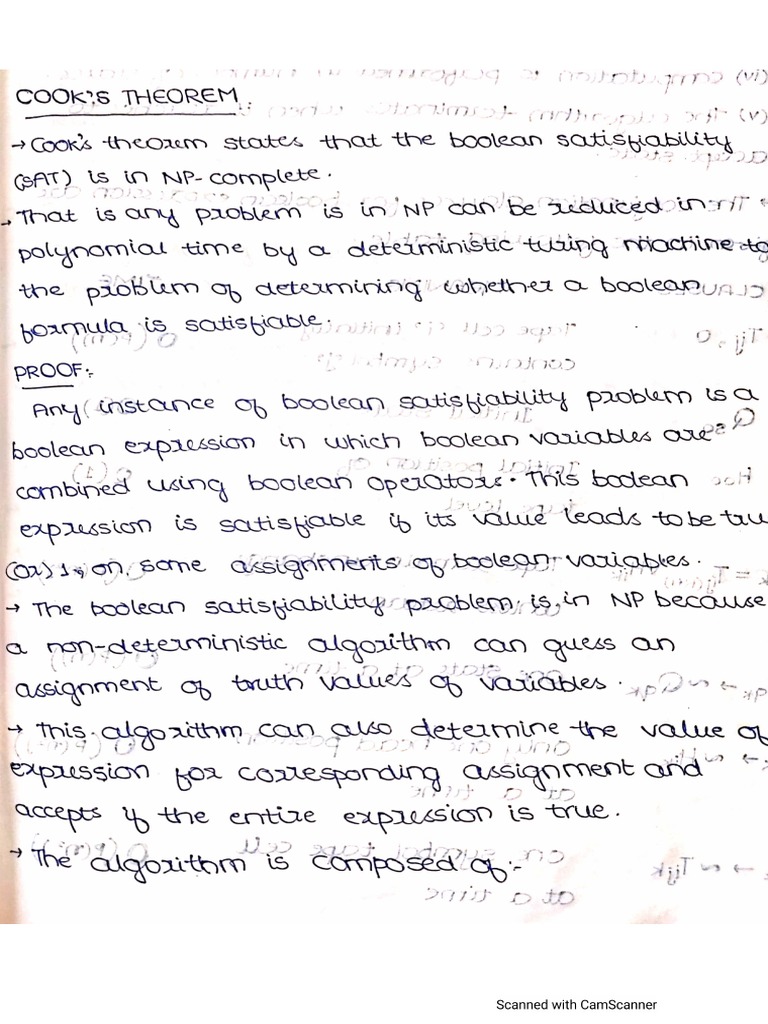 COOK'S THEOREM
→ Cook's theorem states that the boolean satisfiability
(SAT) is in NP-complete.
→ That is any problem is in NP can be reduced in
polynomial time by a deterministic turing machine to
the problem of determining whether a boolean
formula is satisfiable.
PROOF:-
Any instance of boolean satisfiability problem is a
boolean expression in which boolean variables are
combined using boolean operators. This boolean
expression is satisfiable if its value leads to be tru
(or) 1, on some assignments of boolean variables.
→ The boolean satisfiability problem is in NP because
a non-deterministic algorithm can guess an
assignment of truth values of variables.
→ This algorithm can also determine the value of
expression for corresponding assignment and
accepts if the entire expression is true.
→ The algorithm is composed of:-
Scanned with CamScanner